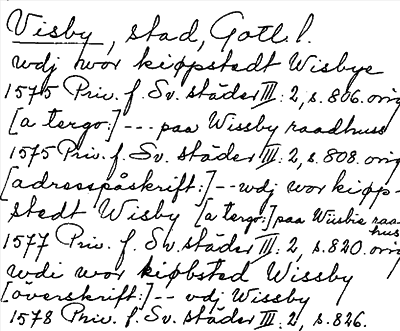 Visby, stad, Gotl. l.
wdj wor kiøpstedt Wisbye
1575 Priv. f. Sv. städer III: 2, s. 806. orig
[a tergo:] --- paa Wissby raadhuss
1575 Priv. f. Sv. städer III: 2, s. 808. orig
[adresspåskrift:] -- wdj wor kiøp-
stedt Wisby [a tergo:] paa Wisbie raa-
huss
1577 Priv. f. Sv. städer III: 2, s. 820. orig
wdi wor kiøbsted Wissby
[överskrift:] -- vdj Wissby
1578 Priv. f. Sv. städer III: 2, s. 826.